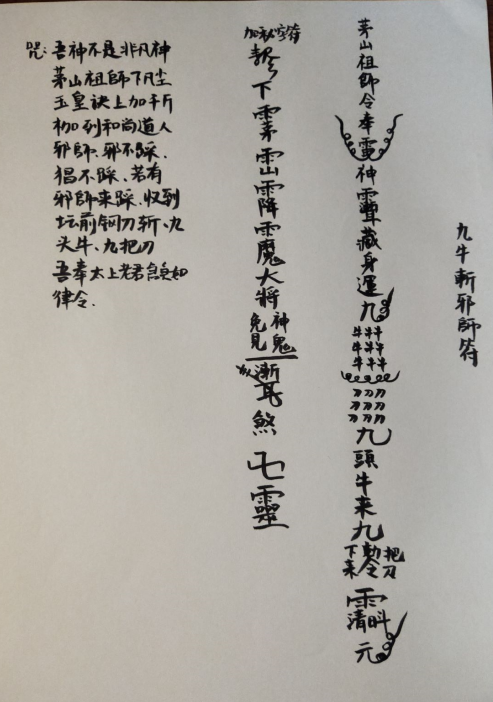 九牛斬邪師符
茅山祖師令奉雷神䨻藏身運九
牛牛牛
牛牛牛
牛牛牛
刀刀刀
刀刀刀
刀刀刀
九頭牛来九把刀下来勅令
清元
加秘字符
下茅山降魔大將
神鬼免見
漸耳煞七靈
咒:吾神不是非凡神
茅山祖師下凡尘
玉皇诀上加千斤
枷列和尚道人
邪師.邪不踩.
猖不踩、若有
邪師来踩.收到
坛前钢刀斩、九
头牛、九把刀
吾奉太上老君急急如
律令.